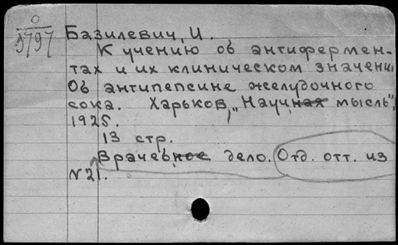 О
5797
Базилевич, И.
К учению об антифермен-
тах и их клиническом значении
Об антипепсине желудочного
сока. Харьков, "Научная мысль",
1925.
13 стр.
Врачебное дело. Отд. отт. из
№21.